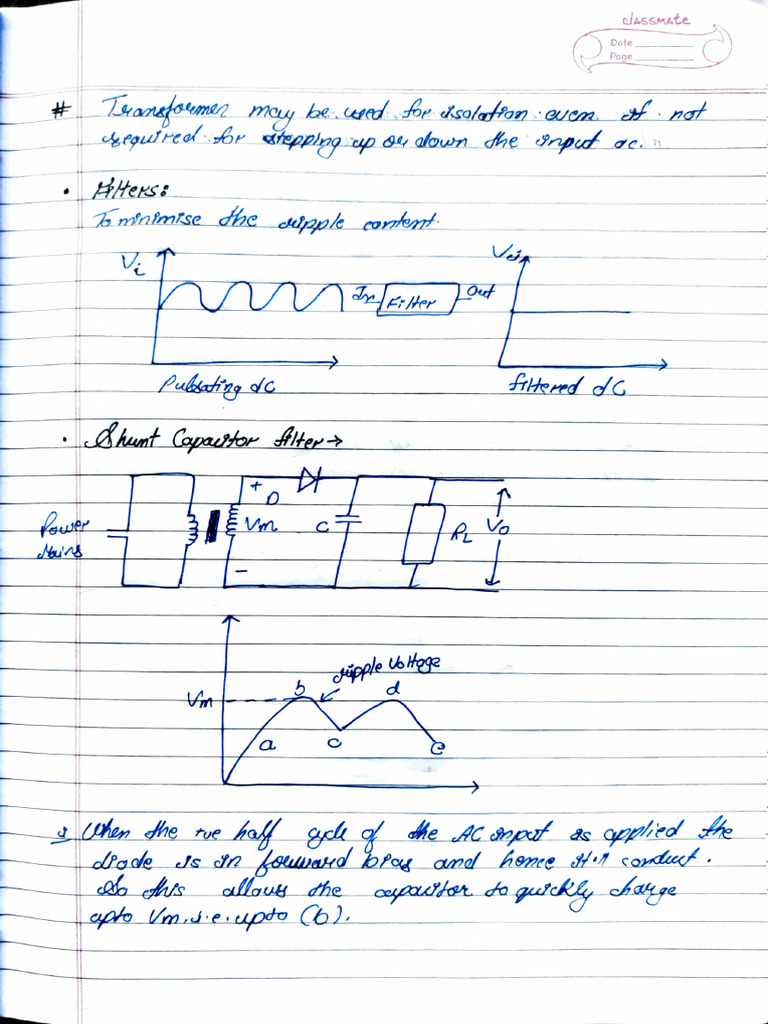 classmate
Date
Page
# Transformer may be used for isolation even if not
required for stepping up or down the input ac.
• Filters:
To minimise the ripple content.
Vi
In Filter Out
Pulsating dC
filtered dC
• Shunt Capacitor filter →
Power
Mains
+
D
Vm
-
C
RL
Vo
ripple Voltage
Vm
b
d
a
c
e
When the +ve half cycle of the AC input is applied the
diode is in forward bias and hence it'll conduct.
So this allows the capacitor to quickly charge
upto Vm. i.e. upto (b).